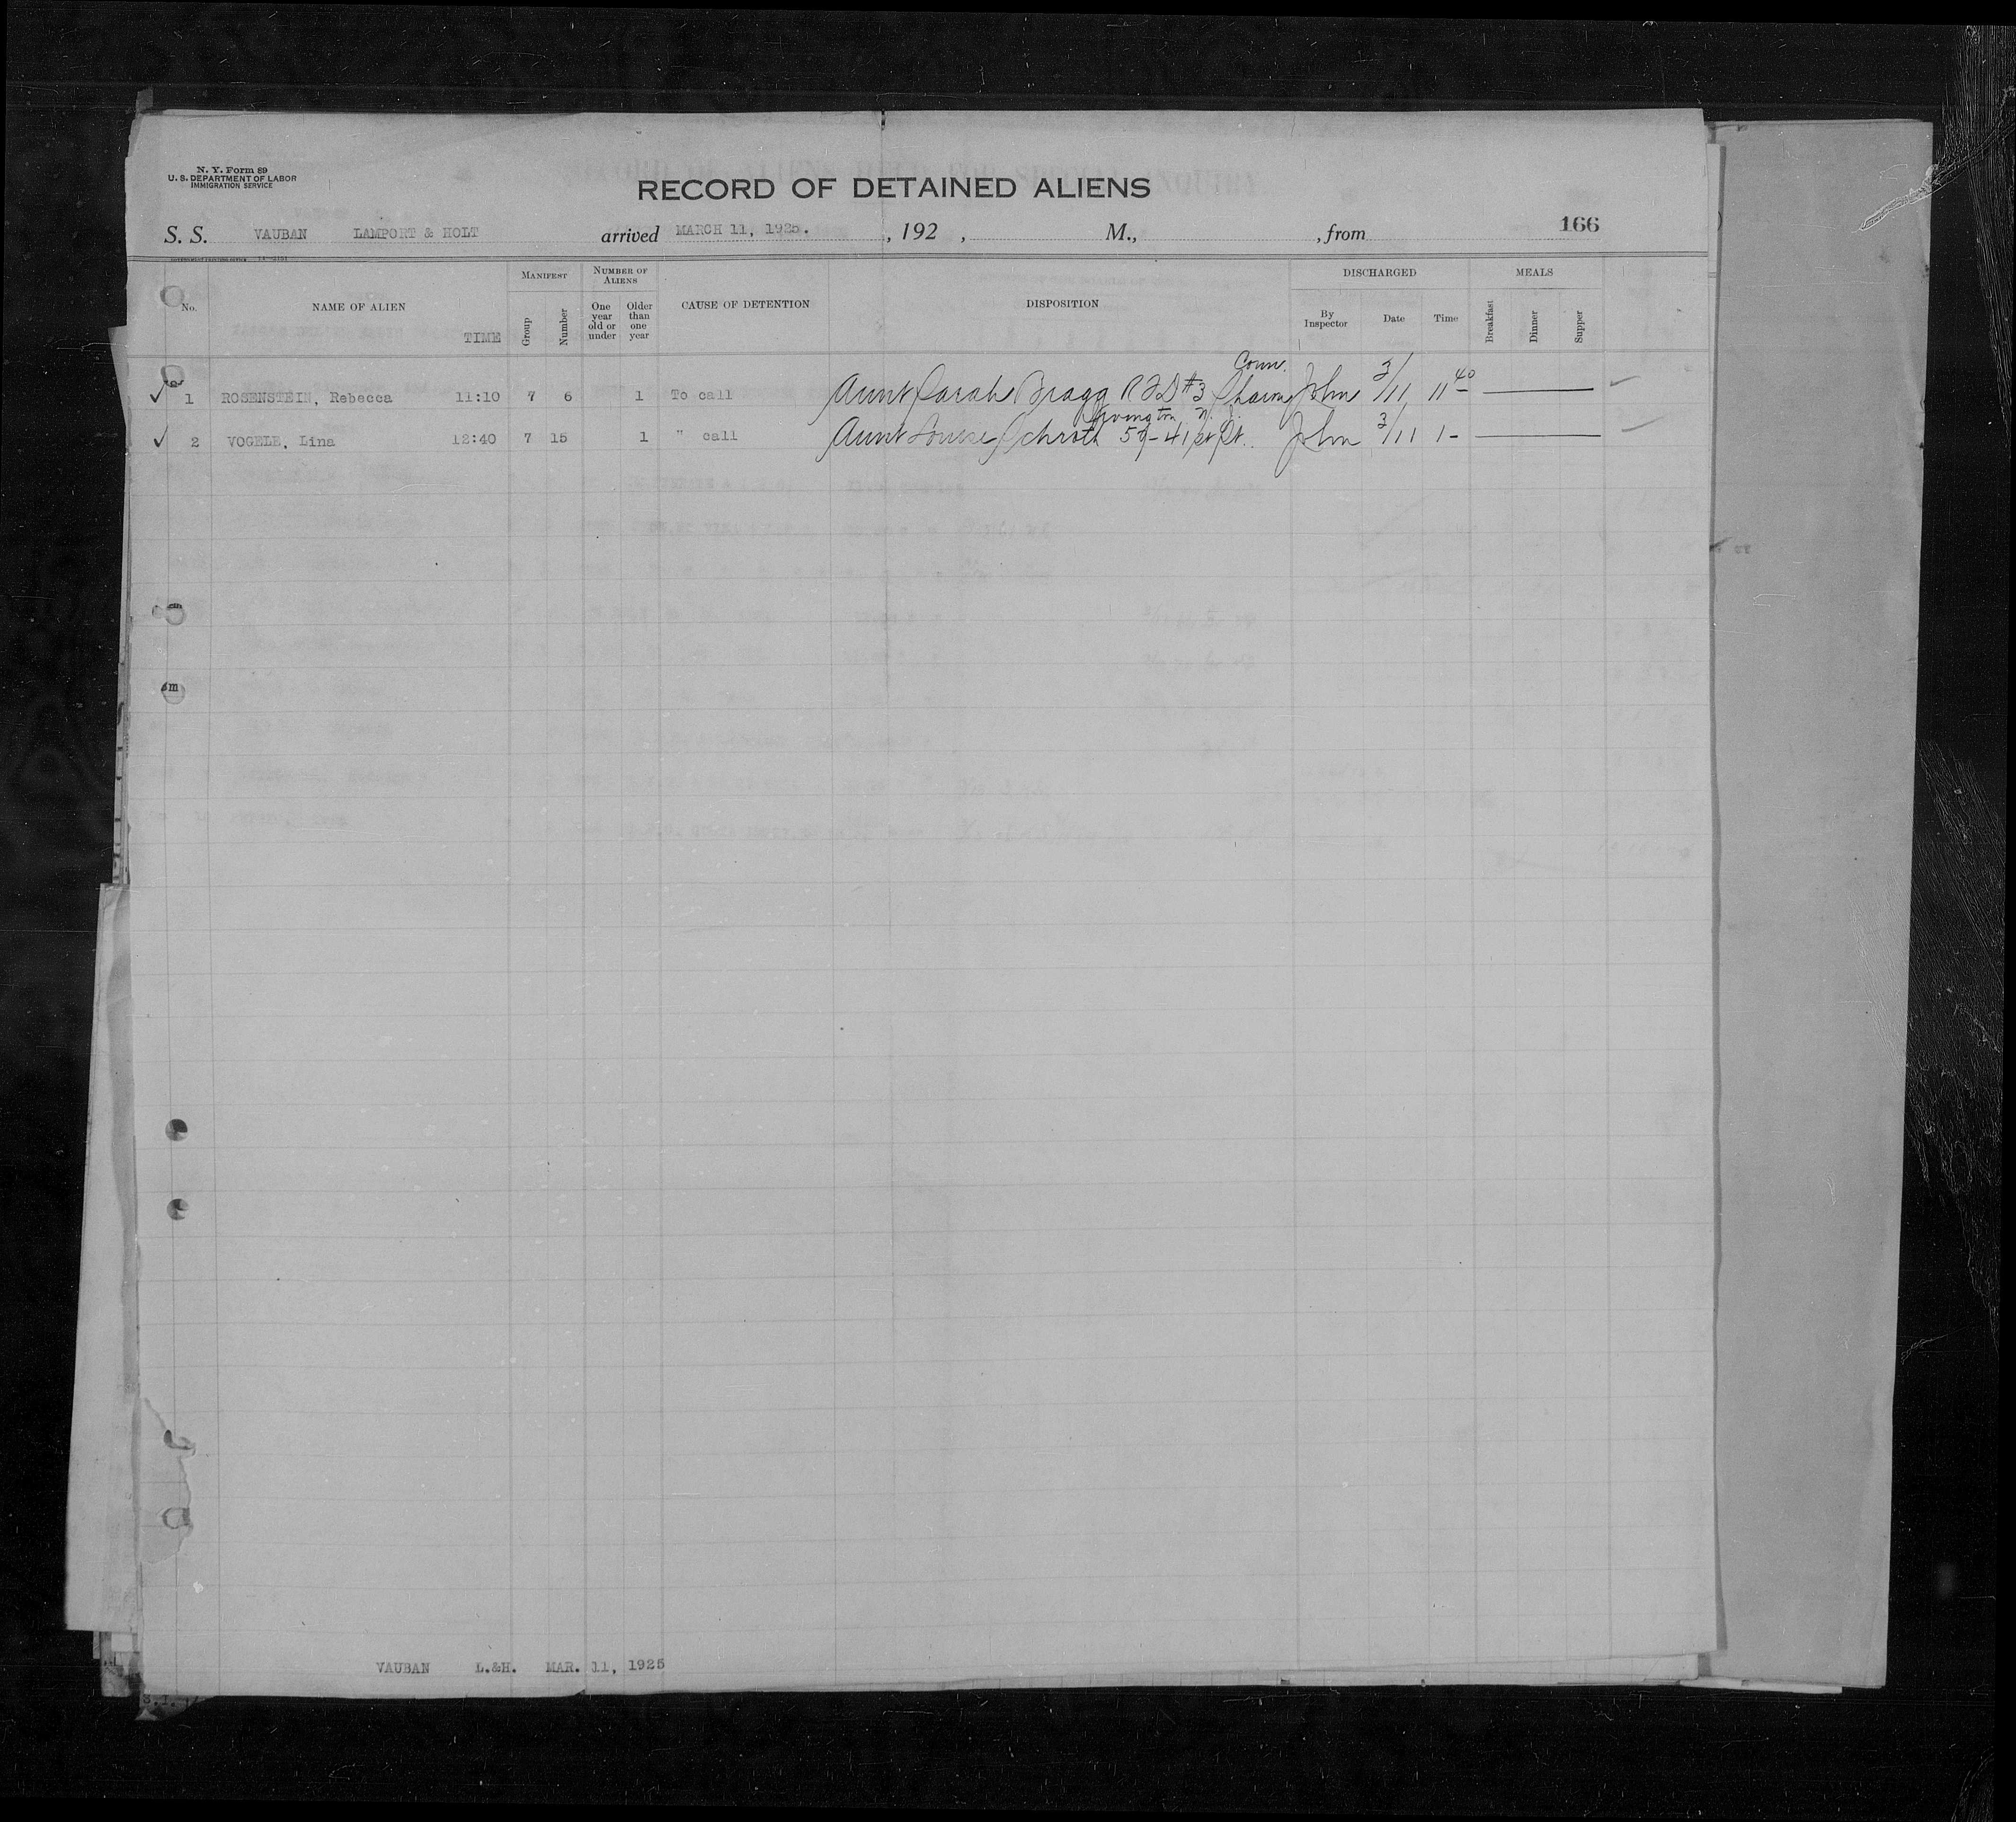 N. Y. Form 89
U. S. DEPARTMENT OF LABOR
IMMIGRATION SERVICE
RECORD OF DETAINED ALIENS
S. S. VAUBAN LAMPORT & HOLT arrived MARCH 11, 1925. , 192 , M., , from 166
No. NAME OF ALIEN TIME MANIFEST Group Number NUMBER OF ALIENS One year old or under Older than one year CAUSE OF DETENTION DISPOSITION DISCHARGED By Inspector Date Time MEALS Breakfast Dinner Supper
Conn.
1 ROSENSTEIN, Rebecca 11:10 7 6 1 To call Aunt Sarah Bragg RFD #3 John 3/11 11 40
Irvington N. J.
2 VOGELE, Lina 12:40 7 15 1 " call Aunt Louise Schroth 59-41st St. John 3/11 1-
VAUBAN L.&H. MAR. 11, 1925